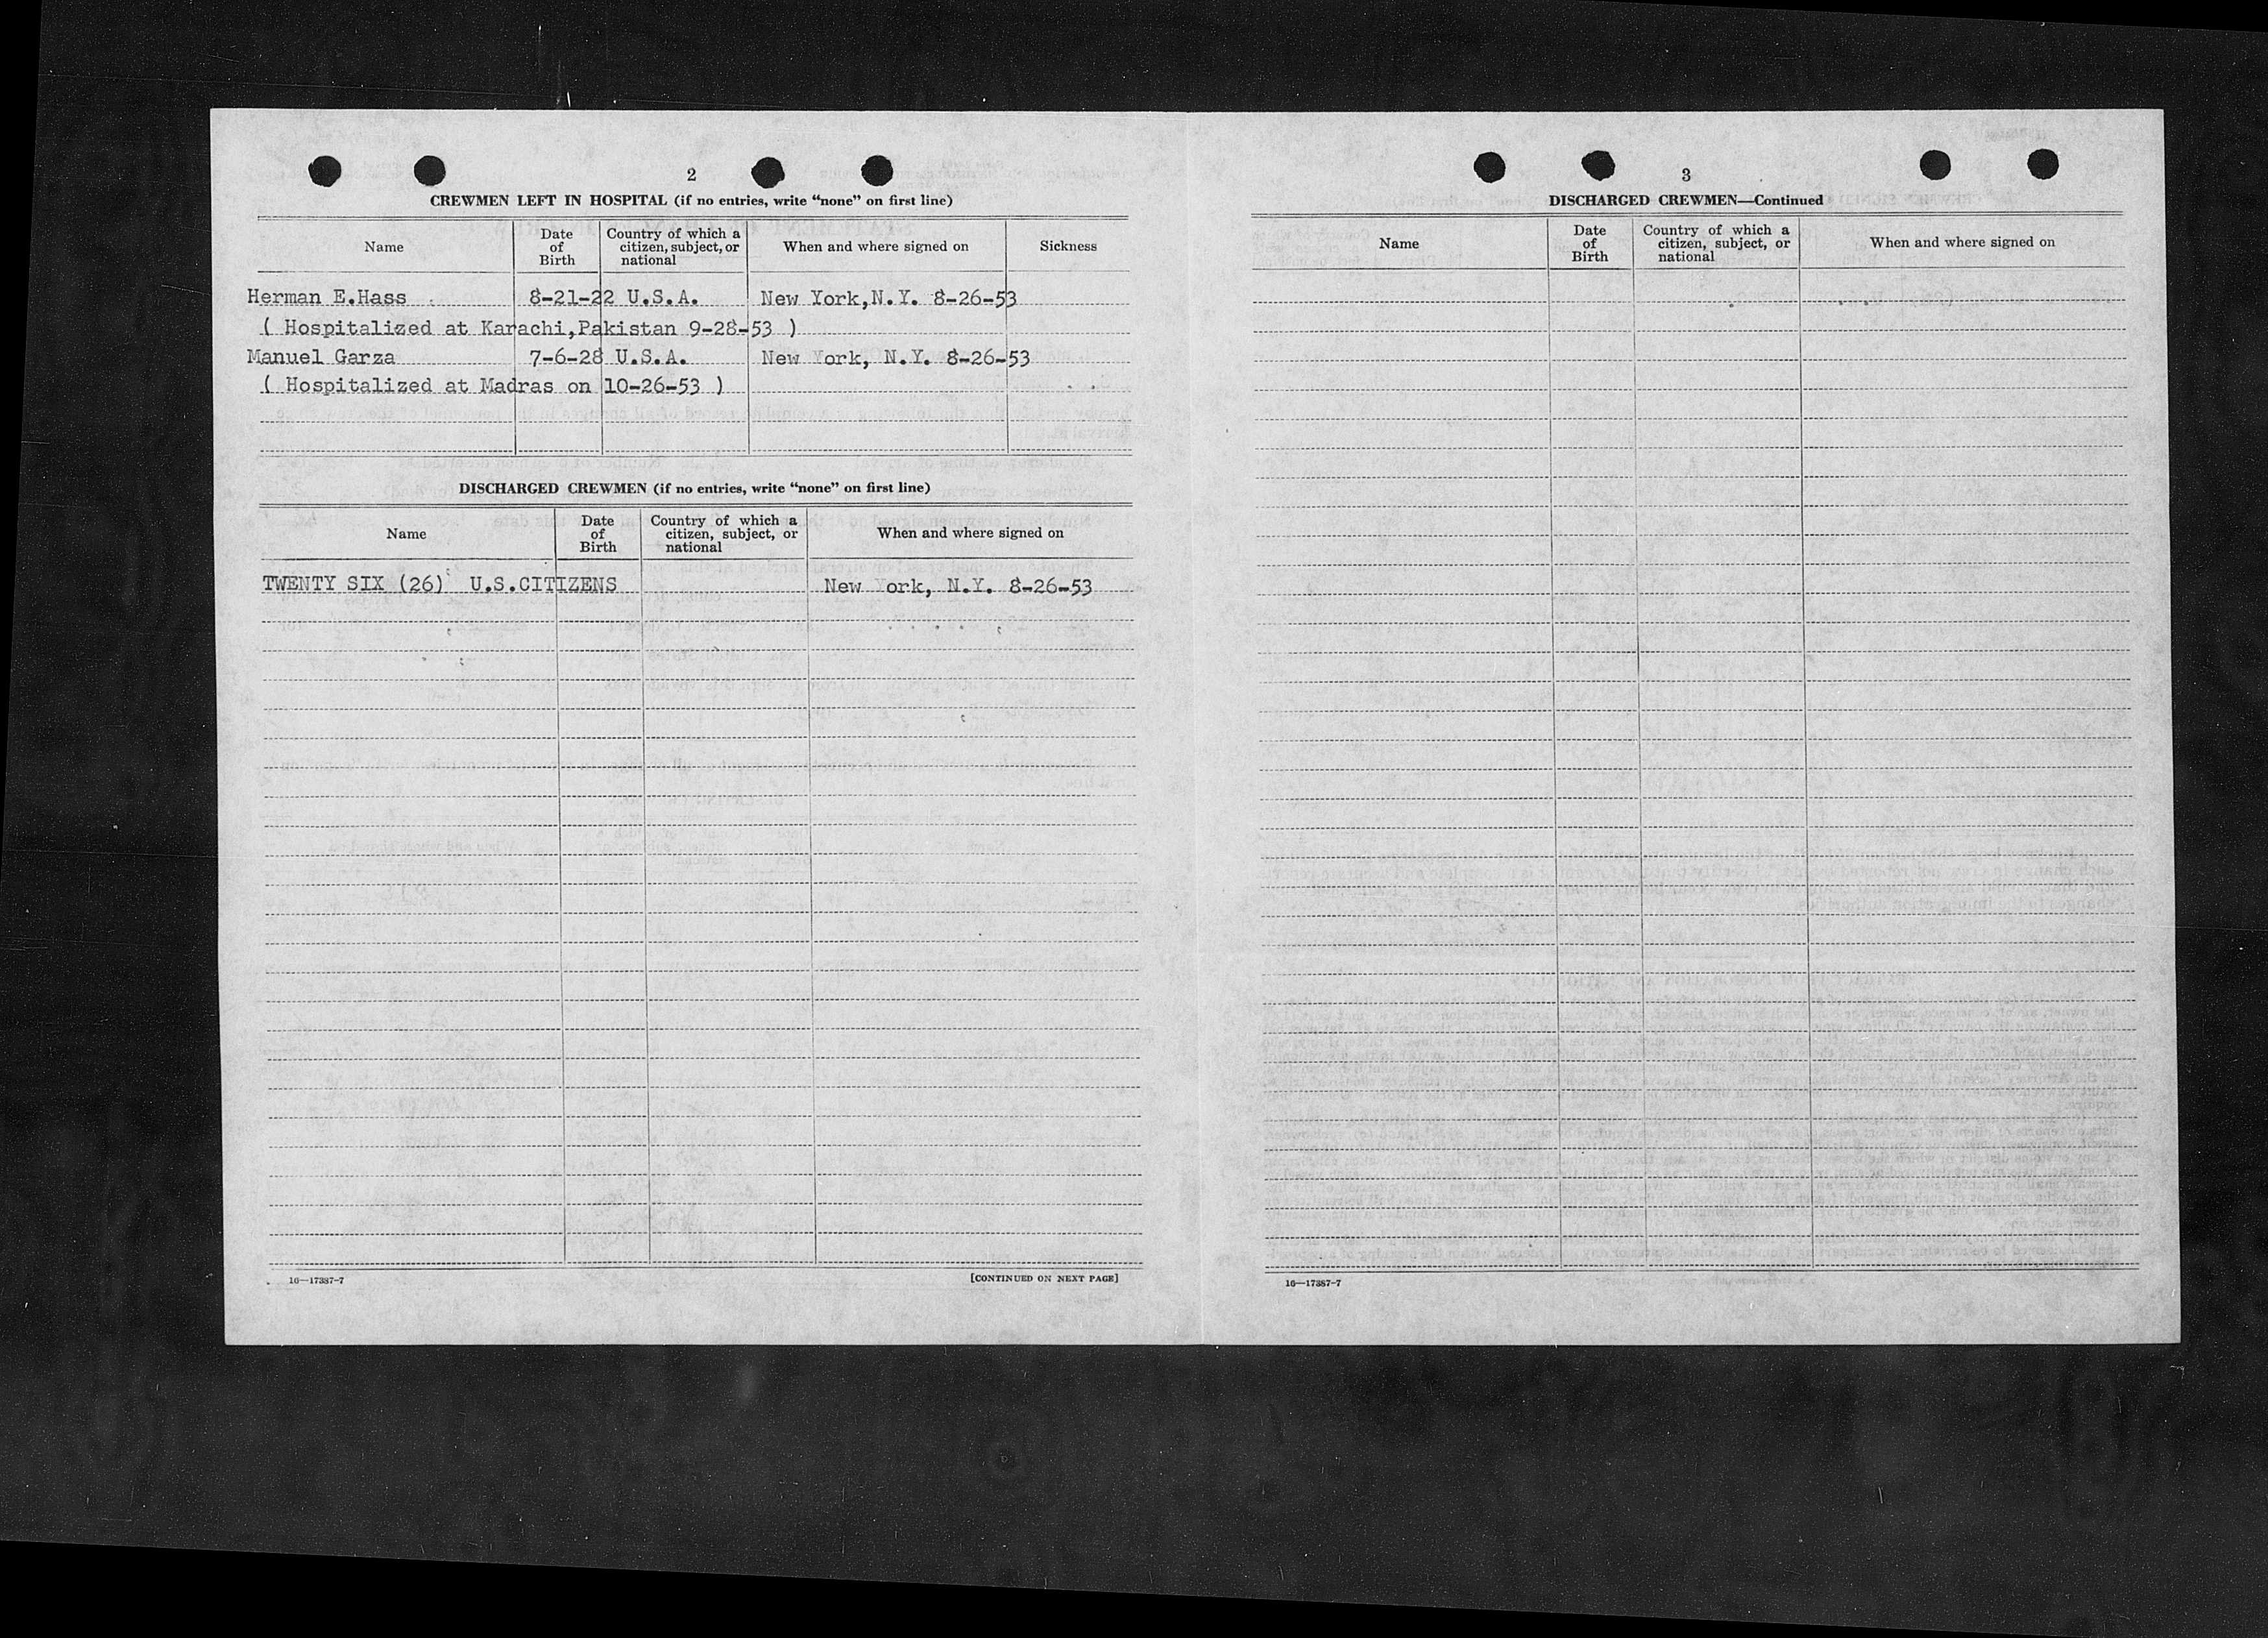 2
CREWMEN LEFT IN HOSPITAL (if no entries, write “none” on first line)
Name
Date of Birth
Country of which a citizen, subject, or national
When and where signed on
Sickness
Herman E.Hass 8-21-22 U.S.A. New York,N.Y. 8-26-53
( Hospitalized at Karachi,Pakistan 9-28-53 )
Manuel Garza 7-6-28 U.S.A. New York, N.Y. 8-26-53
( Hospitalized at Madras on 10-26-53 )
DISCHARGED CREWMEN (if no entries, write “none” on first line)
Name
Date of Birth
Country of which a citizen, subject, or national
When and where signed on
TWENTY SIX (26) U.S.CITIZENS New York, N.Y. 8-26-53
16—17387-7
[CONTINUED ON NEXT PAGE]
3
DISCHARGED CREWMEN—Continued
Name
Date of Birth
Country of which a citizen, subject, or national
When and where signed on
16—17387-7